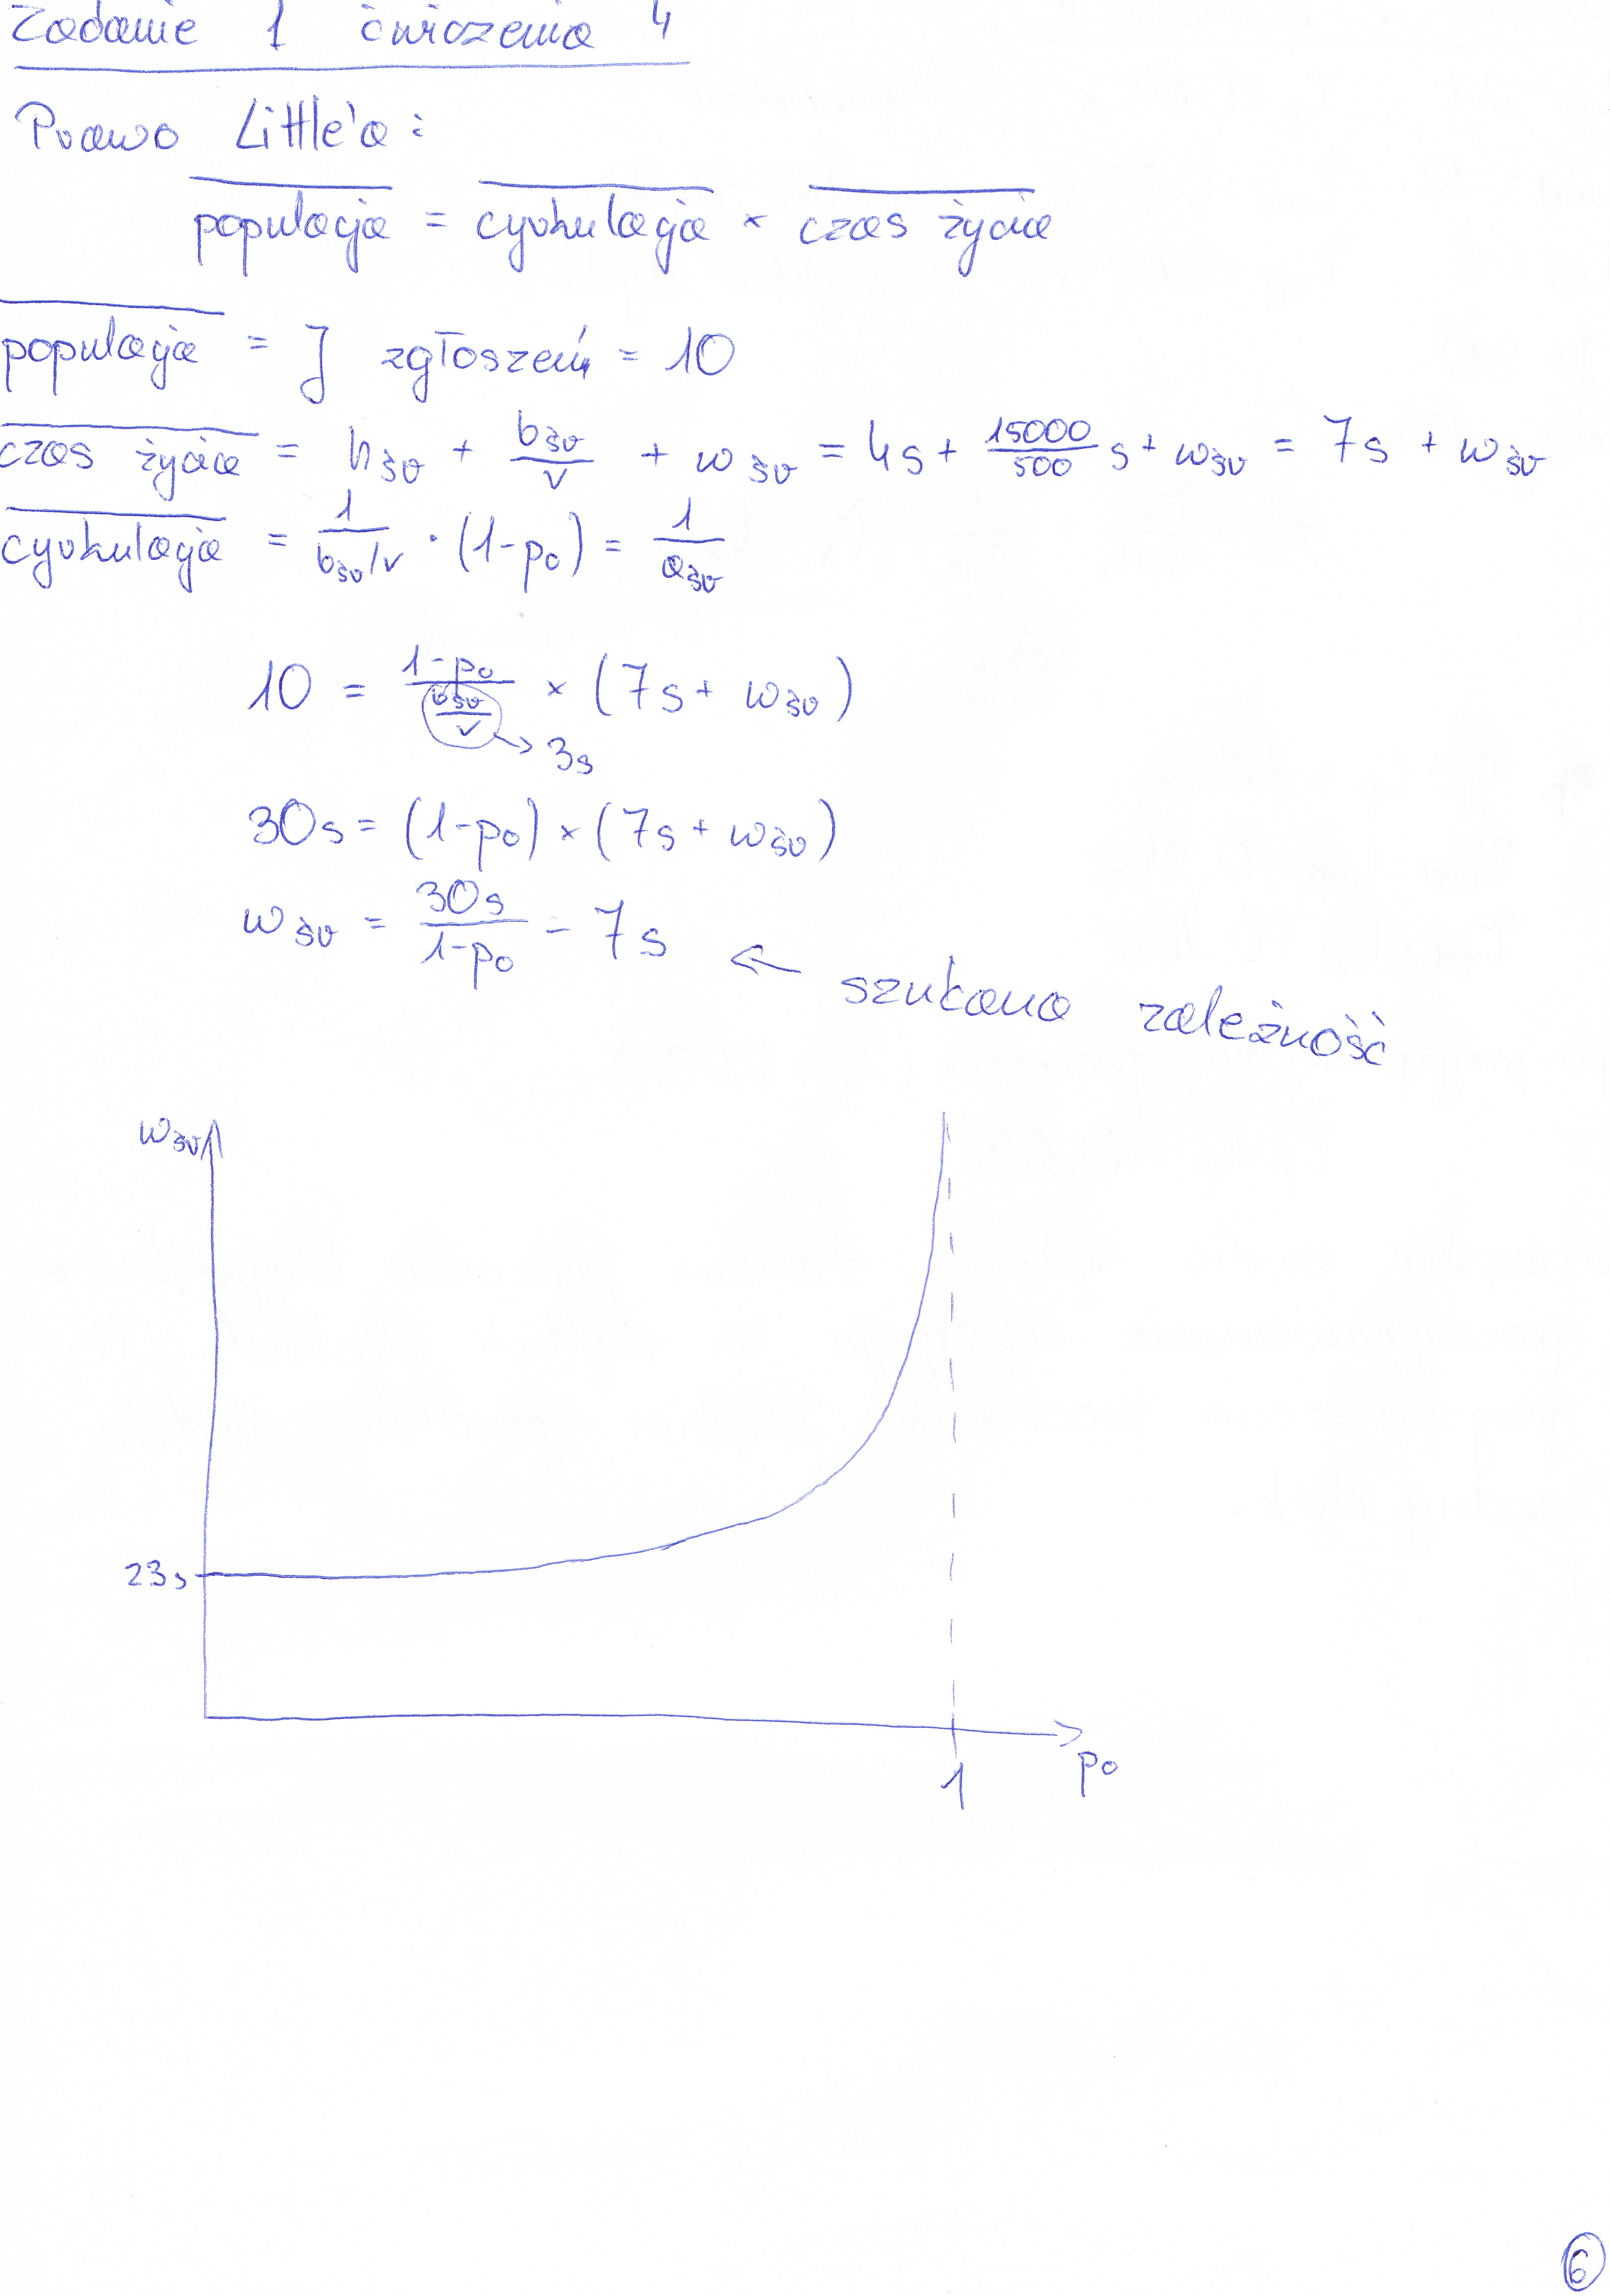 Zadanie 1 ćwiczenia 4
Prawo Little'a :
populacja = cyrkulacja × czas życia
populacja = J zgłoszeń = 10
czas życia = h śr + b śr / v + w śr = 4s + 15000/500 s + w śr = 7s + w śr
cyrkulacja = 1/(b śr/v) · (1-p0) = 1/a śr
10 = (1-p0)/(b śr/v) × (7s + w śr)
→ 3s
30s = (1-p0) × (7s + w śr)
w śr = 30s/(1-p0) - 7s ← szukana zależność
w śr
23s
1
p0
6